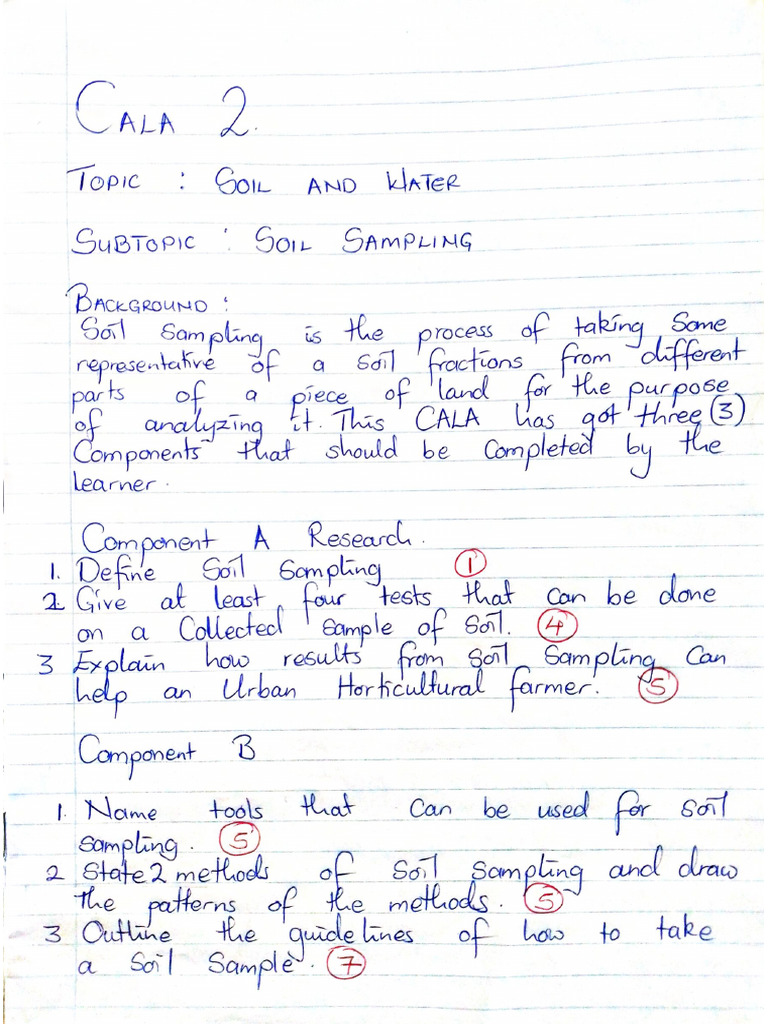 CALA 2.
TOPIC : SOIL AND WATER
SUBTOPIC : SOIL SAMPLING
BACKGROUND :
Soil Sampling is the process of taking Some
representative of a soil fractions from different
parts of a piece of land for the purpose
of analyzing it. This CALA has got three (3)
Components that should be completed by the
learner.
Component A Research.
1. Define Soil Sampling 1
2. Give at least four tests that can be done
on a Collected sample of soil. 4
3 Explain how results from soil Sampling Can
help an Urban Horticultural farmer. 5
Component B
1. Name tools that can be used for soil
sampling. 5
2 State 2 methods of Soil sampling and draw
the patterns of the methods. 5
3 Outline the guidelines of how to take
a Soil Sample. 7